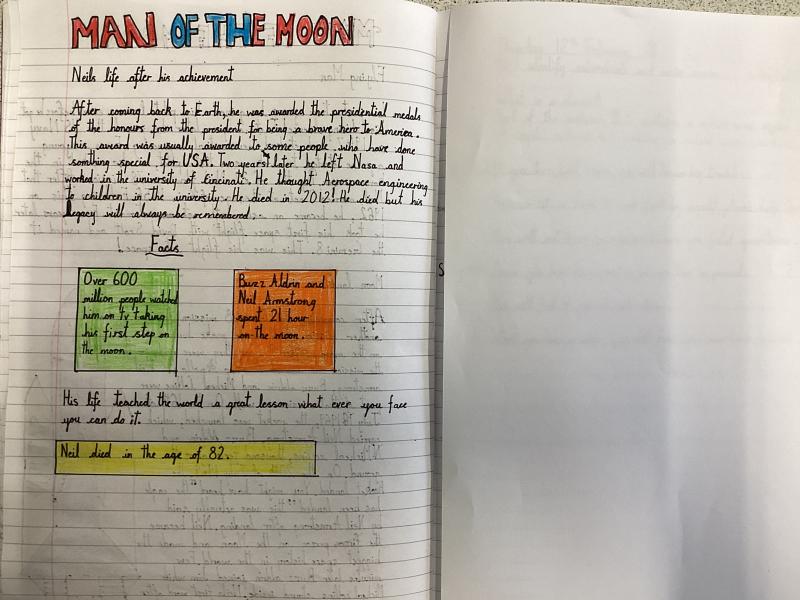 MAN OF THE MOON
Neils life after his achievement
After coming back to Earth, he was awarded the presidential medals
of the honours from the president for being a brave hero to America.
This award was usually awarded to some people who have done
somthing special for USA. Two years later he left Nasa and
worked in the university of Cincinati. He thought Aerospace engineering
to children in the university. He died in 2012! He died but his
legacy will always be remembered.
Facts!
Over 600
million people watched
him on tv taking
his first step on
the moon.
Buzz Aldrin and
Neil Armstrong
spent 21 hour
on the moon.
His life teached the world a great lesson what ever you face
you can do it.
Neil died in the age of 82.